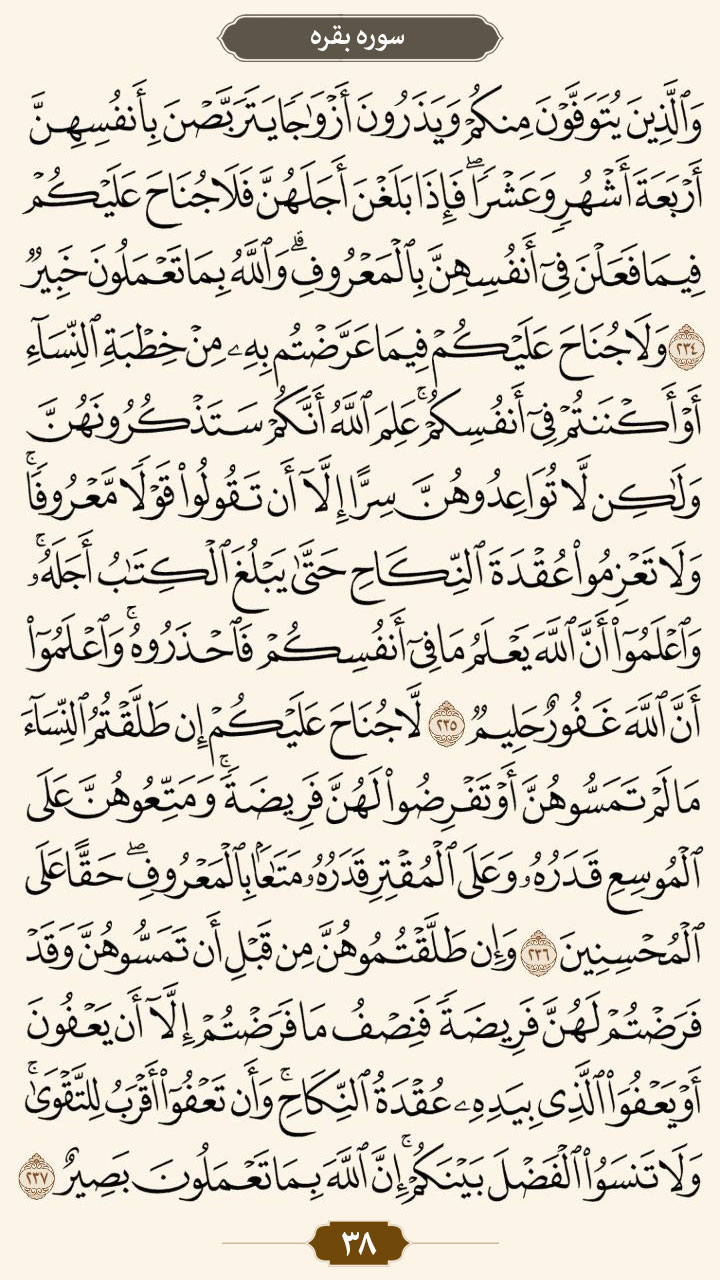 سوره بقره
وَٱلَّذِينَ يُتَوَفَّوۡنَ مِنكُمۡ وَيَذَرُونَ أَزۡوَٰجٗا يَتَرَبَّصۡنَ بِأَنفُسِهِنَّ
أَرۡبَعَةَ أَشۡهُرٖ وَعَشۡرٗاۖ فَإِذَا بَلَغۡنَ أَجَلَهُنَّ فَلَا جُنَاحَ عَلَيۡكُمۡ
فِيمَا فَعَلۡنَ فِيٓ أَنفُسِهِنَّ بِٱلۡمَعۡرُوفِۗ وَٱللَّهُ بِمَا تَعۡمَلُونَ خَبِيرٞ
٢٣٤ وَلَا جُنَاحَ عَلَيۡكُمۡ فِيمَا عَرَّضۡتُم بِهِۦ مِنۡ خِطۡبَةِ ٱلنِّسَآءِ
أَوۡ أَكۡنَنتُمۡ فِيٓ أَنفُسِكُمۡۚ عَلِمَ ٱللَّهُ أَنَّكُمۡ سَتَذۡكُرُونَهُنَّ
وَلَٰكِن لَّا تُوَاعِدُوهُنَّ سِرًّا إِلَّآ أَن تَقُولُواْ قَوۡلٗا مَّعۡرُوفٗاۚ
وَلَا تَعۡزِمُواْ عُقۡدَةَ ٱلنِّكَاحِ حَتَّىٰ يَبۡلُغَ ٱلۡكِتَٰبُ أَجَلَهُۥۚ
وَٱعۡلَمُوٓاْ أَنَّ ٱللَّهَ يَعۡلَمُ مَا فِيٓ أَنفُسِكُمۡ فَٱحۡذَرُوهُۚ وَٱعۡلَمُوٓاْ
أَنَّ ٱللَّهَ غَفُورٌ حَلِيمٞ ٢٣٥ لَّا جُنَاحَ عَلَيۡكُمۡ إِن طَلَّقۡتُمُ ٱلنِّسَآءَ
مَا لَمۡ تَمَسُّوهُنَّ أَوۡ تَفۡرِضُواْ لَهُنَّ فَرِيضَةٗۚ وَمَتِّعُوهُنَّ عَلَى
ٱلۡمُوسِعِ قَدَرُهُۥ وَعَلَى ٱلۡمُقۡتِرِ قَدَرُهُۥ مَتَٰعَۢا بِٱلۡمَعۡرُوفِۖ حَقًّا عَلَى
ٱلۡمُحۡسِنِينَ ٢٣٦ وَإِن طَلَّقۡتُمُوهُنَّ مِن قَبۡلِ أَن تَمَسُّوهُنَّ وَقَدۡ
فَرَضۡتُمۡ لَهُنَّ فَرِيضَةٗ فَنِصۡفُ مَا فَرَضۡتُمۡ إِلَّآ أَن يَعۡفُونَ
أَوۡ يَعۡفُوَاْ ٱلَّذِي بِيَدِهِۦ عُقۡدَةُ ٱلنِّكَاحِۚ وَأَن تَعۡفُوٓاْ أَقۡرَبُ لِلتَّقۡوَىٰۚ
وَلَا تَنسَوُاْ ٱلۡفَضۡلَ بَيۡنَكُمۡۚ إِنَّ ٱللَّهَ بِمَا تَعۡمَلُونَ بَصِيرٌ ٢٣٧
٣٨